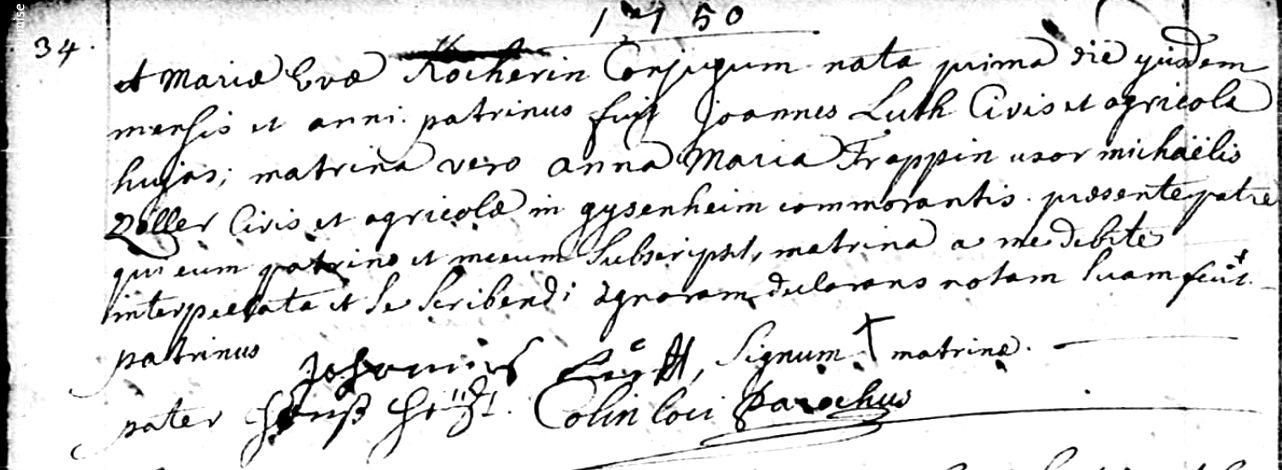 1750
34.
et Mariæ Evæ Kocherin Conjugum nata prima die ejusdem
mensis et anni. patrinus fuit Joannes Luth Civis et agricola
hujas; matrina vero anna Maria Frappin uxor michaëlis
Zoller Civis et agricolæ in gysenheim commorantis. præsente patre
qui cum patrino et mecum subscripsit, matrina a me debite
interpellata et se scribendi ignaram declarans notam suam fecit.
patrinus Johannes signum + matrinæ.
pater Colin loci parochus